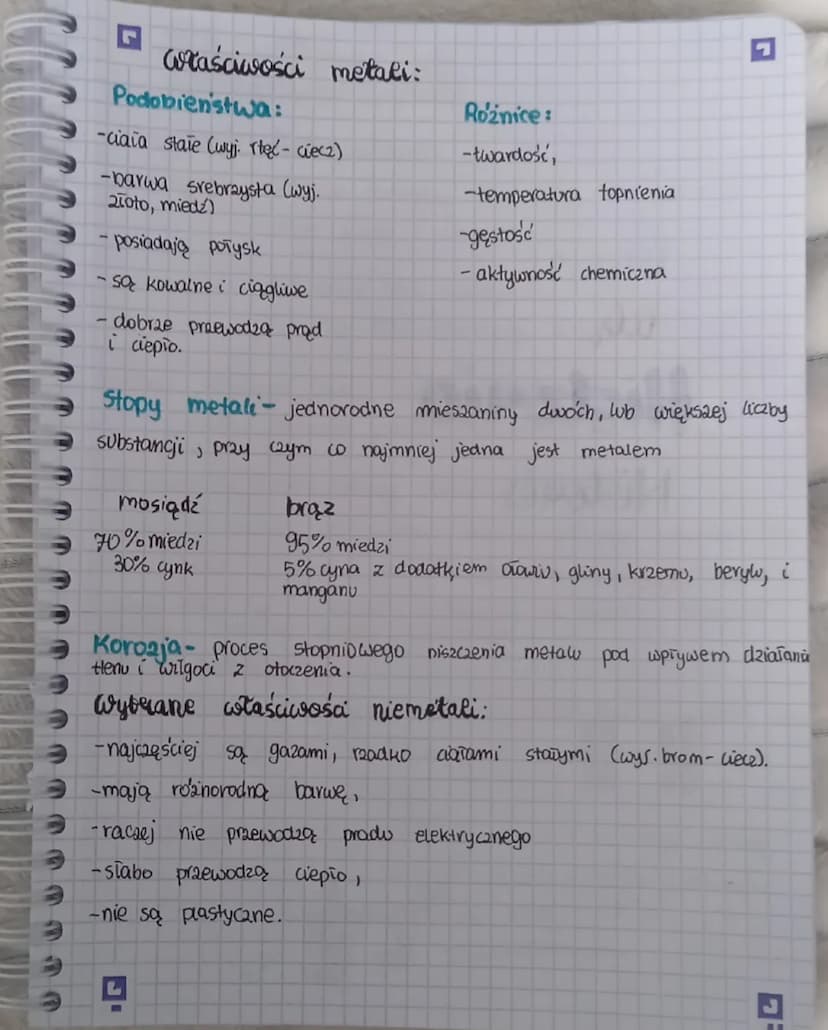 właściwości metali:
Podobieństwa:
-ciała stałe (wyj. rtęć - ciecz)
-barwa srebrzysta (wyj.
złoto, miedź)
- posiadają połysk
- są kowalne i ciągliwe
- dobrze przewodzą prąd
i ciepło.
Różnice:
-twardość,
-temperatura topnienia
-gęstość
- aktywność chemiczna
Stopy metali - jednorodne mieszaniny dwóch, lub większej liczby
substancji, przy czym co najmniej jedna jest metalem
mosiądź
70% miedzi
30% cynk
brąz
95% miedzi
5% cyna z dodatkiem ołowiu, gliny, krzemu, berylu, i
manganu
Korozja - proces stopniowego niszczenia metalu pod wpływem działania
tlenu i wilgoci z otoczenia.
Wybrane właściwości niemetali:
-najczęściej są gazami, rzadko ciałami stałymi (wyj. brom - ciecz).
-mają różnorodną barwę,
-raczej nie przewodzą prądu elektrycznego
-słabo przewodzą ciepło,
-nie są plastyczne.